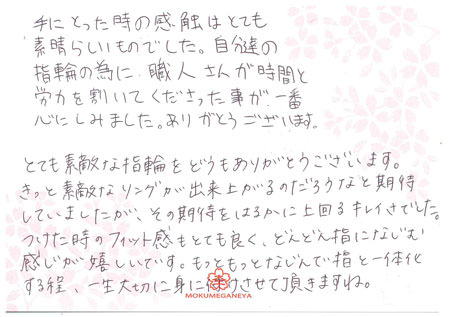 手にとった時の感触はとても
素晴らしいものでした。自分達の
指輪の為に、職人さんが時間と
労力を割いてくださった事が、一番
心にしみました。ありがとうございます。
とても素敵な指輪をどうもありがとうございます。
きっと素敵なリングが出来上がるのだろうなと期待
していましたが、その期待をはるかに上回るキレイさでした。
つけた時のフィット感もとても良く、どんどん指になじむ
感じが嬉しいです。もっともっとなじんで指と一体化
する程、一生大切に身に付けさせて頂きますね。
MOKUMEGANEYA